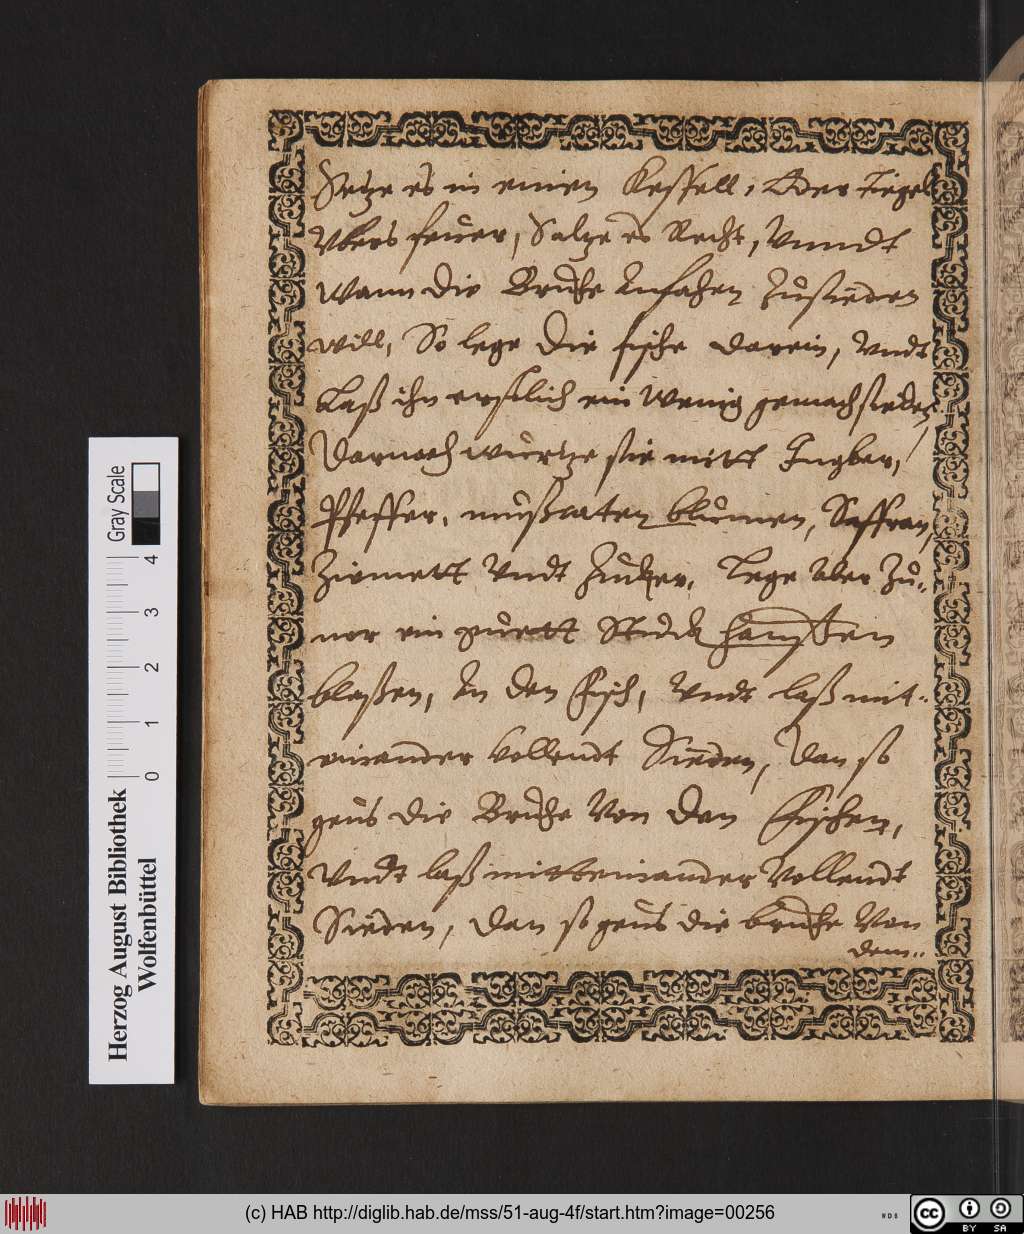 Setze es in einen Kessell, Oder Tiegel
Vbers feuer, Saltze es Recht, Vnndt
Wann die Bruhe Anfahen Zusieden
will, So lege die fische darein, Vndt
Laß ihn erstlich ein wenig gemach sieden,
Darnach wurtze sie mitt Ingber,
Pfeffer, mußcaten blumen, Saffran,
Zimmett Vndt Zucker, Lege Aber Zu„
uor ein guett Stuck
blaßen, An den Fisch, Vndt laß mit„
einander Vollendt Sieden, Dan so
geus die Bruhe Von den Fischen,
Vndt laß mitteinander Vollendt
Sieden, Dan so geus die bruhe Von
dem„
Gray Scale
4 3 2 1 0
Herzog August Bibliothek
Wolfenbüttel
(c) HAB http://diglib.hab.de/mss/51-aug-4f/start.htm?image=00256
WDB
cc BY SA